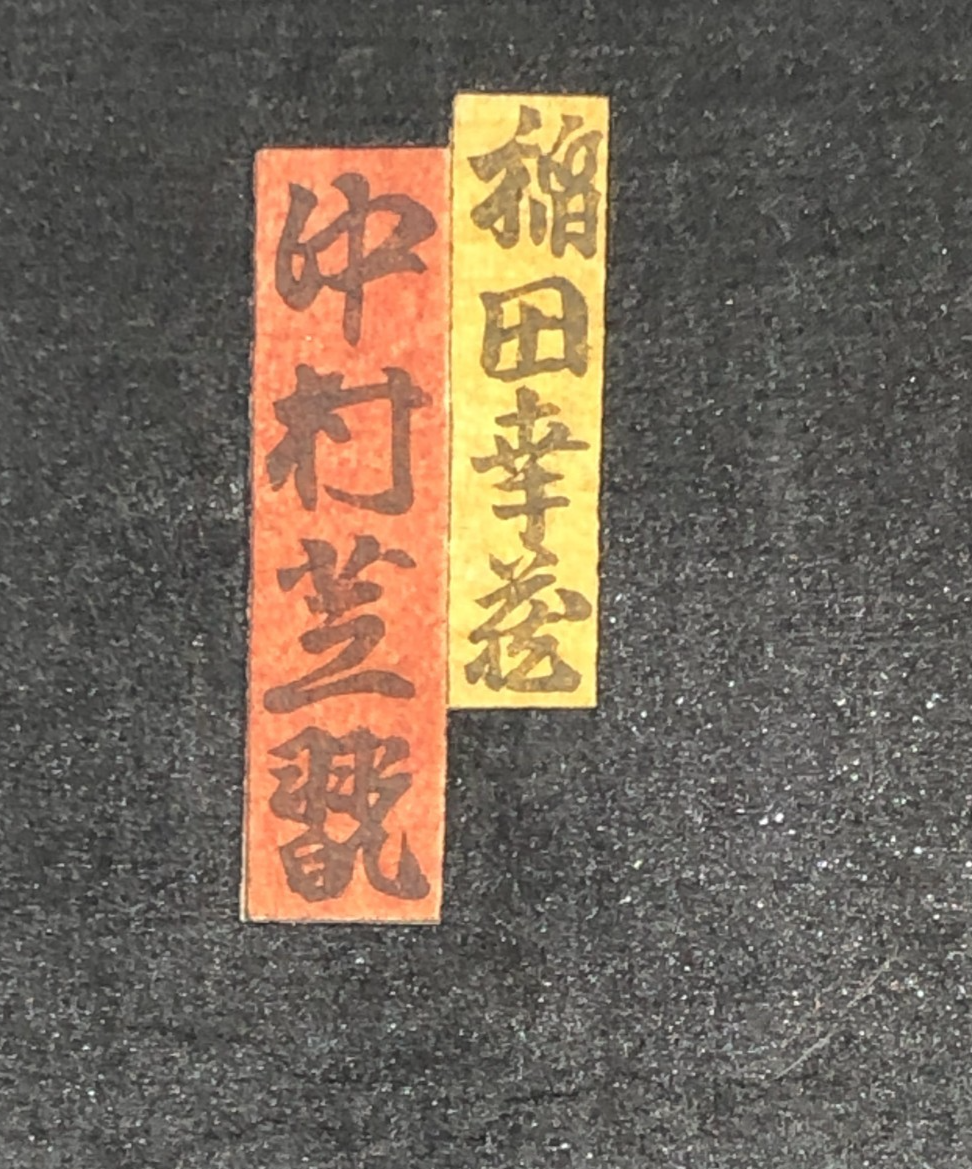 稲田幸蔵
中村芝翫